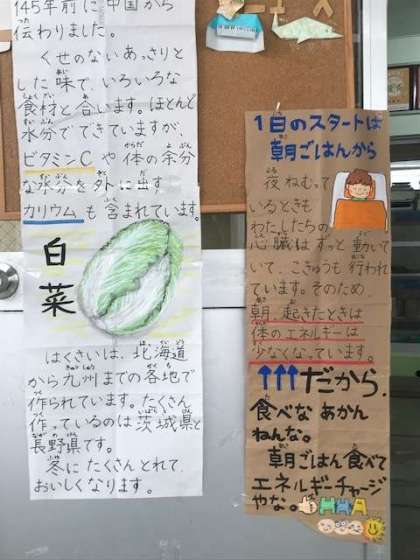 145年前に中国から
伝わりました。
くせのないあっさりと
した味でいろいろな
食材と合います。ほとんど
水分でできていますが、
ビタミンCや体の余分
な水分を外に出す
カリウムも含まれています。
白菜
はくさいは、北海道
から九州までの各地で
作られています。たくさん
作っているのは茨城県と
長野県です。
冬にたくさんとれて
おいしくなります。
1日のスタートは
朝ごはんから
夜ねむって
いるときも
わたしたちの
心臓はずっと動いて
いて、こきゅうも行われ
ています。そのため
朝、起きたときは
体のエネルギーは
少なくなっています。
↑↑↑だから、
食べな あかん
ねんな。
朝ごはん食べて
エネルギーチャージ
やな。